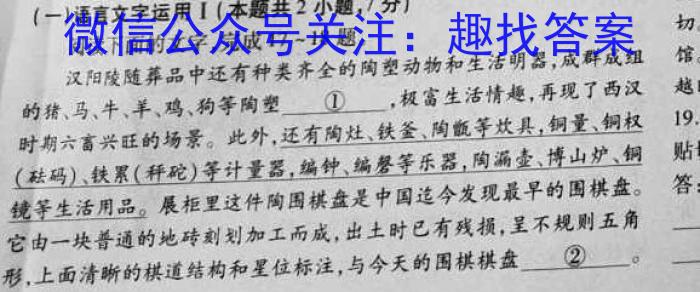 (一)语言文字运用Ⅰ(本题共2小题,7分)
微信公众号关注：趣找答案
汉阳陵随葬品中还有种类齐全的陶塑动物和生活明器,成群成组
的猪、马、牛、羊、鸡、狗等陶塑①,极富生活情趣,再现了西汉
时期六畜兴旺的场景。此外,还有陶灶、铁釜、陶甑等炊具,铜量、铜权
(砝码)、铁累(秤砣)等计量器,编钟、编磬等乐器,陶漏壶、博山炉、铜
镜等生活用品。展柜里这件陶围棋盘是中国迄今发现最早的围棋盘。
它由一块普通的地砖刻划加工而成,出土时已有残损,呈不规则五角
形,上面清晰的棋道结构和星位标注,与今天的围棋棋盘②。
切
馆。
越
19.
贴
答